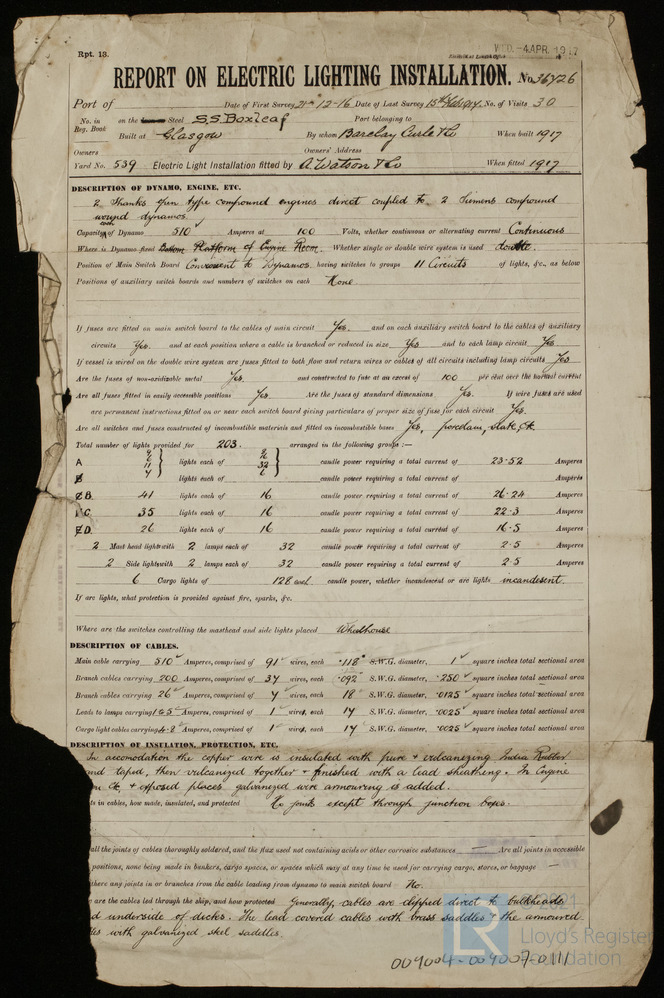 Rpt. 13.
WED. -4 APR. 1917
REPORT ON ELECTRIC LIGHTING INSTALLATION. No. 36426
Port of Date of First Survey 21st 12-16 Date of Last Survey 15th No. of Visits 30
No. in Reg. Book on the Steel S.S. Boxleaf Port belonging to
Built at Glasgow By whom Barclay Curle & Co When built 1917
Owners Owners' Address
Yard No. 539 Electric Light Installation fitted by A. Watson & Co When fitted 1917
DESCRIPTION OF DYNAMO, ENGINE, ETC.
2 Shanks open type compound engines direct coupled to 2 Siemens compound
wound dynamos.
Capacity of Dynamo 510 Amperes at 100 Volts, whether continuous or alternating current Continuous
Where is Dynamo fixed Bottom Platform of Engine Room. Whether single or double wire system is used double.
Position of Main Switch Board Convenient to Dynamos. having switches to groups 11 Circuits of lights, &c., as below
Positions of auxiliary switch boards and numbers of switches on each None
If fuses are fitted on main switch board to the cables of main circuit Yes. and on each auxiliary switch board to the cables of auxiliary
circuits Yes. and at each position where a cable is branched or reduced in size Yes and to each lamp circuit Yes
If vessel is wired on the double wire system are fuses fitted to both flow and return wires or cables of all circuits including lamp circuits Yes
Are the fuses of non-oxidizable metal Yes. and constructed to fuse at an excess of 100 per cent over the normal current
Are all fuses fitted in easily accessible positions Yes. Are the fuses of standard dimensions Yes. If wire fuses are used
are permanent instructions fitted on or near each switch board giving particulars of proper size of fuse for each circuit Yes.
Are all switches and fuses constructed of incombustible materials and fitted on incombustible bases Yes, porcelain, slate, &c.
Total number of lights provided for 203. arranged in the following groups :—
A 11 lights each of 32 candle power requiring a total current of 23.52 Amperes
B lights each of candle power requiring a total current of Amperes
B. 41 lights each of 16 candle power requiring a total current of 26.24 Amperes
C. 35 lights each of 16 candle power requiring a total current of 22.3 Amperes
D. 26 lights each of 16 candle power requiring a total current of 16.5 Amperes
2 Mast head lights with 2 lamps each of 32 candle power requiring a total current of 2.5 Amperes
2 Side lights with 2 lamps each of 32 candle power requiring a total current of 2.5 Amperes
6 Cargo lights of 128 each candle power, whether incandescent or arc lights incandescent.
If arc lights, what protection is provided against fire, sparks, &c.
Where are the switches controlling the masthead and side lights placed Wheelhouse
DESCRIPTION OF CABLES.
Main cable carrying 510 Amperes, comprised of 91 wires, each .118" S.W.G. diameter, 1 square inches total sectional area
Branch cables carrying 200 Amperes, comprised of 37 wires, each .092" S.W.G. diameter, .250 square inches total sectional area
Branch cables carrying 26 Amperes, comprised of 7 wires, each 18 S.W.G. diameter, .0125 square inches total sectional area
Leads to lamps carrying 1.25 Amperes, comprised of 1 wires, each 17 S.W.G. diameter, .0025 square inches total sectional area
Cargo light cables carrying 4.8 Amperes, comprised of 1 wires, each 17 S.W.G. diameter, .0025 square inches total sectional area
DESCRIPTION OF INSULATION, PROTECTION, ETC.
In accomodation the copper wire is insulated with pure & vulcanizing India Rubber
and taped, then vulcanized together & finished with a lead sheathing. In Engine
&c. & exposed places galvanized wire armouring is added.
ts in cables, how made, insulated, and protected No joints except through junction boxes.
all the joints of cables thoroughly soldered, and the flux used not containing acids or other corrosive substances — Are all joints in accessible
positions, none being made in bunkers, cargo spaces, or spaces which may at any time be used for carrying cargo, stores, or baggage —
there any joints in or branches from the cable leading from dynamo to main switch board No.
are the cables led through the ship, and how protected Generally, cables are clipped direct to bulkheads
d underside of decks. The lead covered cables with brass saddles & the armoured
les with galvanized steel saddles.
Lloyd's Register
Foundation
009004-009007-0111